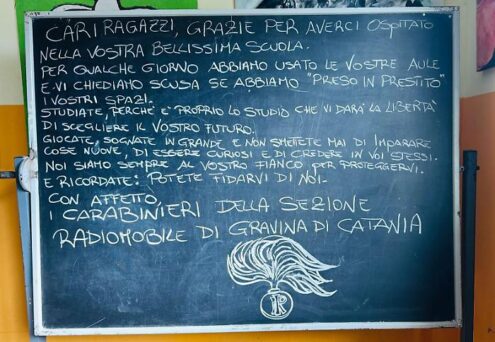 CARI RAGAZZI, GRAZIE PER AVERCI OSPITATO
NELLA VOSTRA BELLISSIMA SCUOLA.
PER QUALCHE GIORNO ABBIAMO USATO LE VOSTRE AULE
E VI CHIEDIAMO SCUSA SE ABBIAMO "PRESO IN PRESTITO"
I VOSTRI SPAZI.
STUDIATE, PERCHE' E' PROPRIO LO STUDIO CHE VI DARA' LA LIBERTÀ
DI SCEGLIERE IL VOSTRO FUTURO.
GIOCATE, SOGNATE IN GRANDE E NON SMETTETE MAI DI IMPARARE
COSE NUOVE, DI ESSERE CURIOSI E DI CREDERE IN VOI STESSI.
NOI SIAMO SEMPRE AL VOSTRO FIANCO PER PROTEGGERVI.
E RICORDATE: POTETE FIDARVI DI NOI.
CON AFFETTO,
I CARABINIERI DELLA SEZIONE
RADIOMOBILE DI GRAVINA DI CATANIA
RI